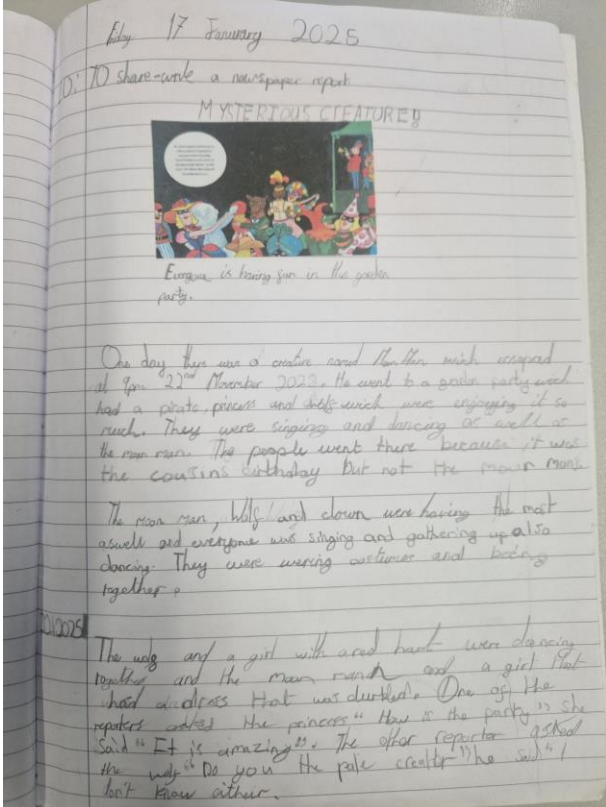 Friday 17 January 2025
LO: TO share-write a newspaper report
MYSTERIOUS CREATURE!!
Everyone is having fun in this garden
party.
One day there was a creature named Moon Man wich escaped
at 9pm 22nd November 2023. He went to a garden party wich
had a pirate, princess and wich were enjoying it so
much. They were singing and dancing as well as
the moon man. The people went there because it was
the cousins birthday but not the moon mans
The moon man, Wolf and clown were having the most
aswell and everyone was singing and gathering up also
dancing. They were wering costumes and being
together.
20/1/2025
The wolf and a girl with a red were dancing
together and the moon and a girl that
had a dress that was. One of the
reporters asked the princess "How is the party" she
said "It is amazing". The other reporter asked
the wolf "Do you the pale creator" he said "I
don't know either.